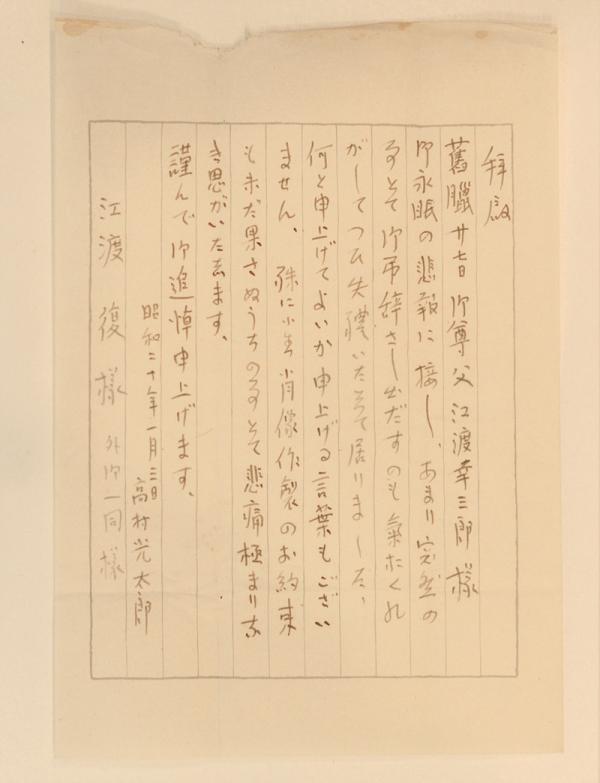 拝啓
舊臘廿七日御尊父江渡幸三郎様
御永眠の悲報に接し、あまり突然の
事とて御弔辞さし出だすのも氣おくれ
がしてつひ失禮いたして居りました、
何と申上げてよいか申上げる言葉もござい
ません、殊に小生肖像作製のお約束
も未だ果さぬうちの事とて悲痛極まりな
き思がいたします、
謹んで御追悼申上げます、
昭和二十年一月三日
高村光太郎
江渡復様
外御一同様